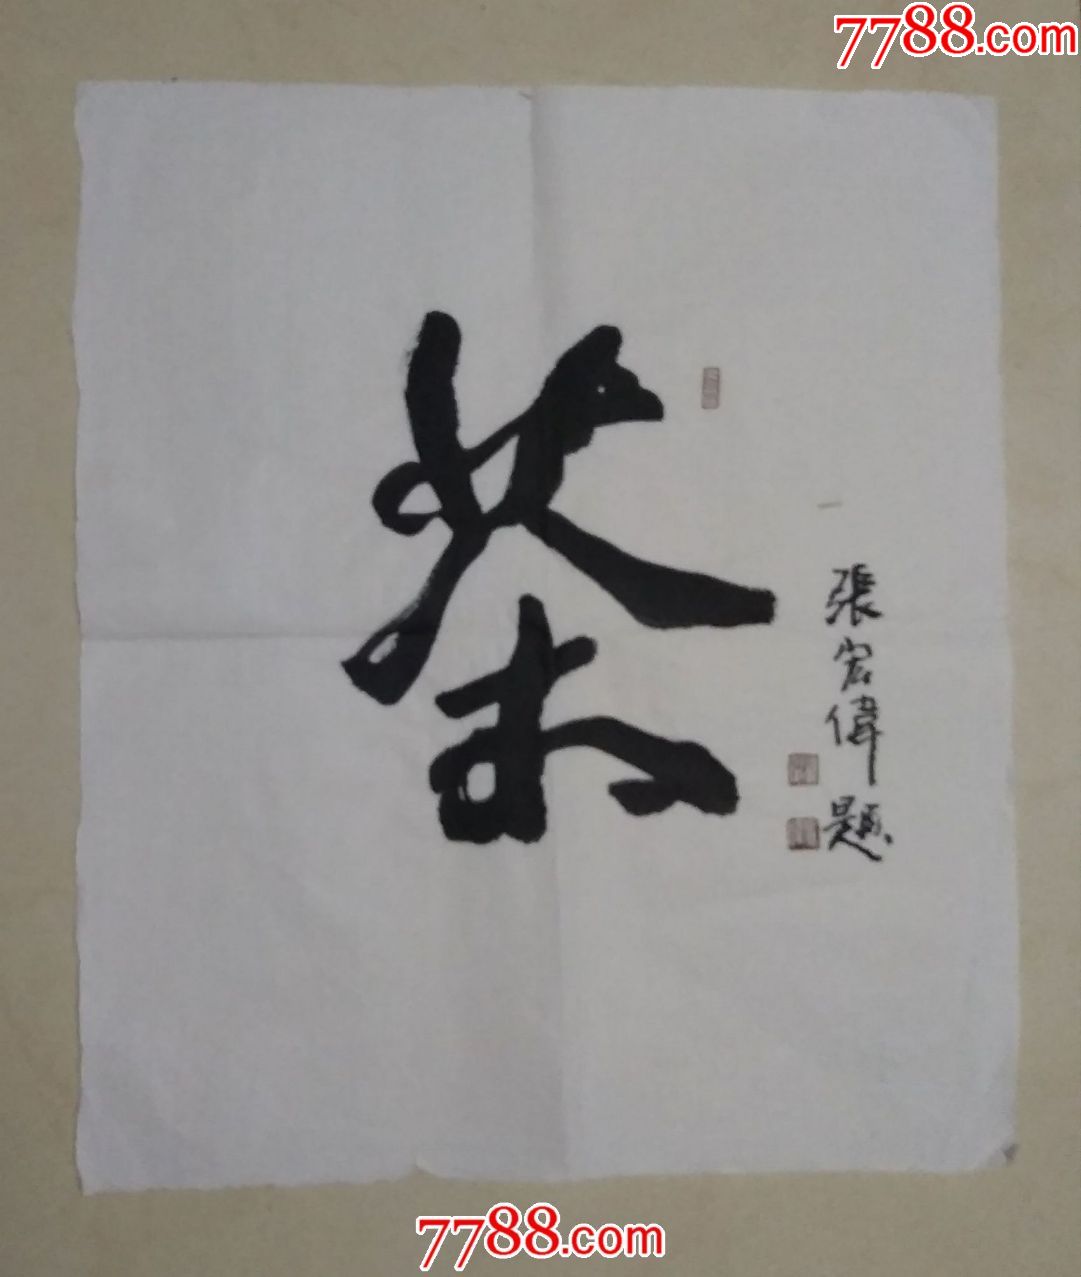 7788.com
茶
張宏偉題
7788.com